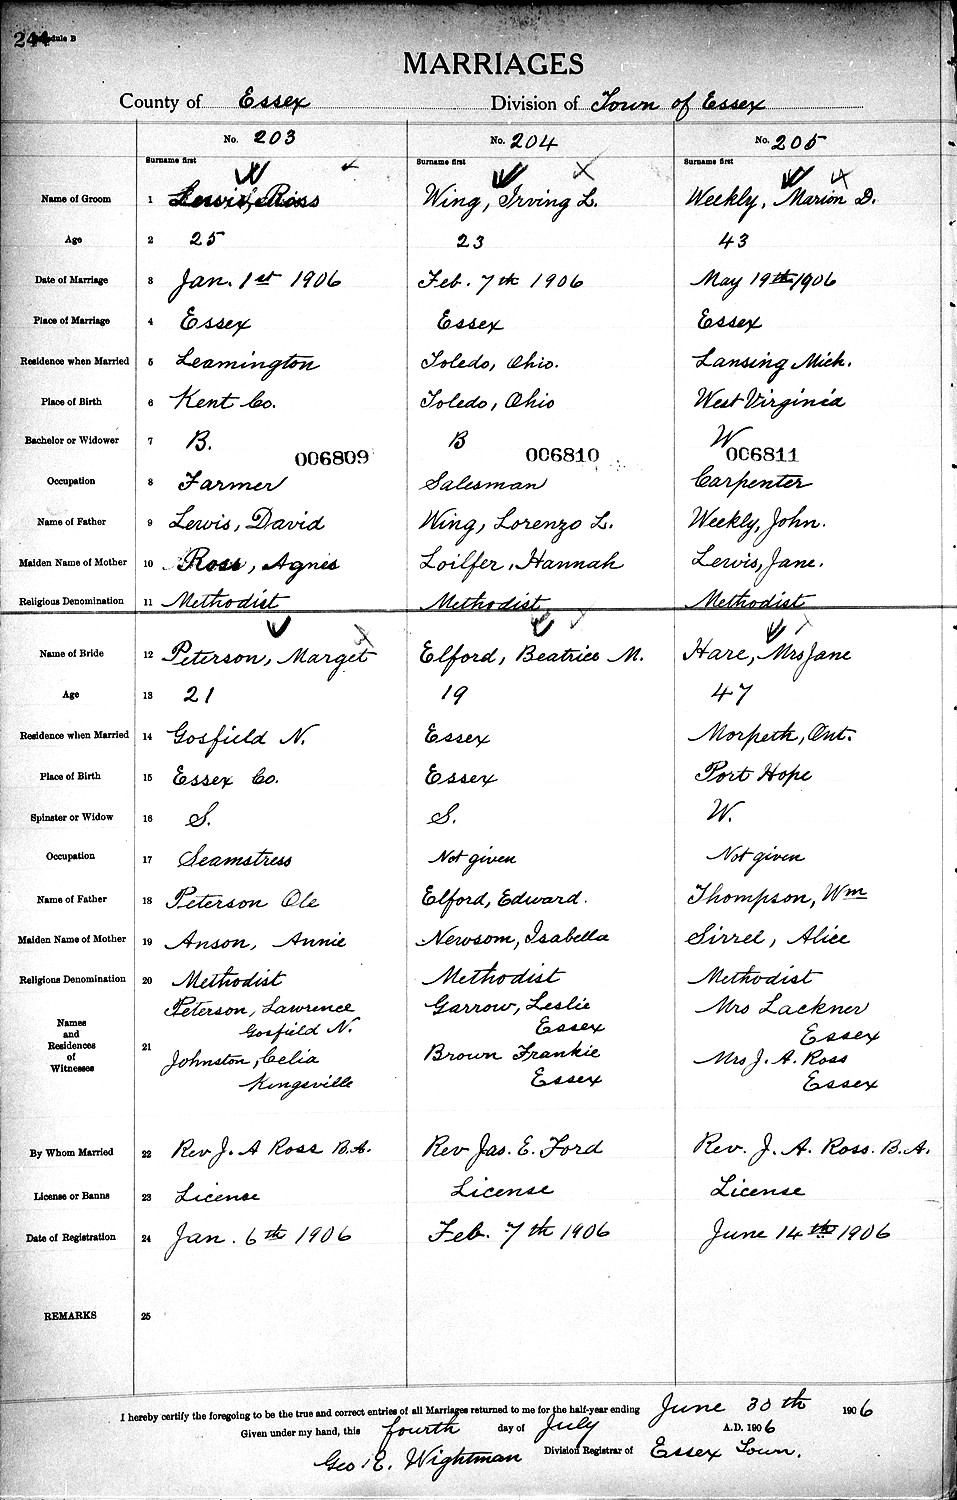 244 Schedule B
MARRIAGES
County of Essex Division of Town of Essex
No. 203 No. 204 No. 205
Surname first Surname first Surname first
Name of Groom 1 Lewis, Ross Wing, Irving L. Weekly, Marion D.
Age 2 25 23 43
Date of Marriage 3 Jan. 1st 1906 Feb. 7th 1906 May 19th 1906
Place of Marriage 4 Essex Essex Essex
Residence when Married 5 Leamington Toledo, Ohio. Lansing Mich.
Place of Birth 6 Kent Co. Toledo, Ohio West Virginia
Bachelor or Widower 7 B. B W
006809 006810 006811
Occupation 8 Farmer Salesman Carpenter
Name of Father 9 Lewis, David Wing, Lorenzo L. Weekly, John.
Maiden Name of Mother 10 Ross, Agnes Loilfer, Hannah Lewis, Jane.
Religious Denomination 11 Methodist Methodist Methodist
Name of Bride 12 Peterson, Marget Elford, Beatrice M. Hare, Mrs Jane
Age 13 21 19 47
Residence when Married 14 Gosfield N. Essex Morpeth, Ont.
Place of Birth 15 Essex Co. Essex Port Hope
Spinster or Widow 16 S. S. W.
Occupation 17 Seamstress Not given Not given
Name of Father 18 Peterson Ole Elford, Edward. Thompson, Wm
Maiden Name of Mother 19 Anson, Annie Newsom, Isabella Sirrel, Alice
Religious Denomination 20 Methodist Methodist Methodist
Names and Residences of Witnesses 21 Peterson, Lawrence Garrow, Leslie Mrs Lackner
Gosfield N. Essex Essex
Johnston, Celia Brown Frankie Mrs J. A. Ross
Kingsville Essex Essex
By Whom Married 22 Rev J. A Ross B.A. Rev Jas. E. Ford Rev. J. A. Ross. B.A.
License or Banns 23 License License License
Date of Registration 24 Jan. 6th 1906 Feb. 7th 1906 June 14th 1906
REMARKS 25
I hereby certify the foregoing to be the true and correct entries of all Marriages returned to me for the half-year ending June 30th 1906
Given under my hand, this fourth day of July A.D. 1906
Geo. E. Wightman Division Registrar of Essex Town.